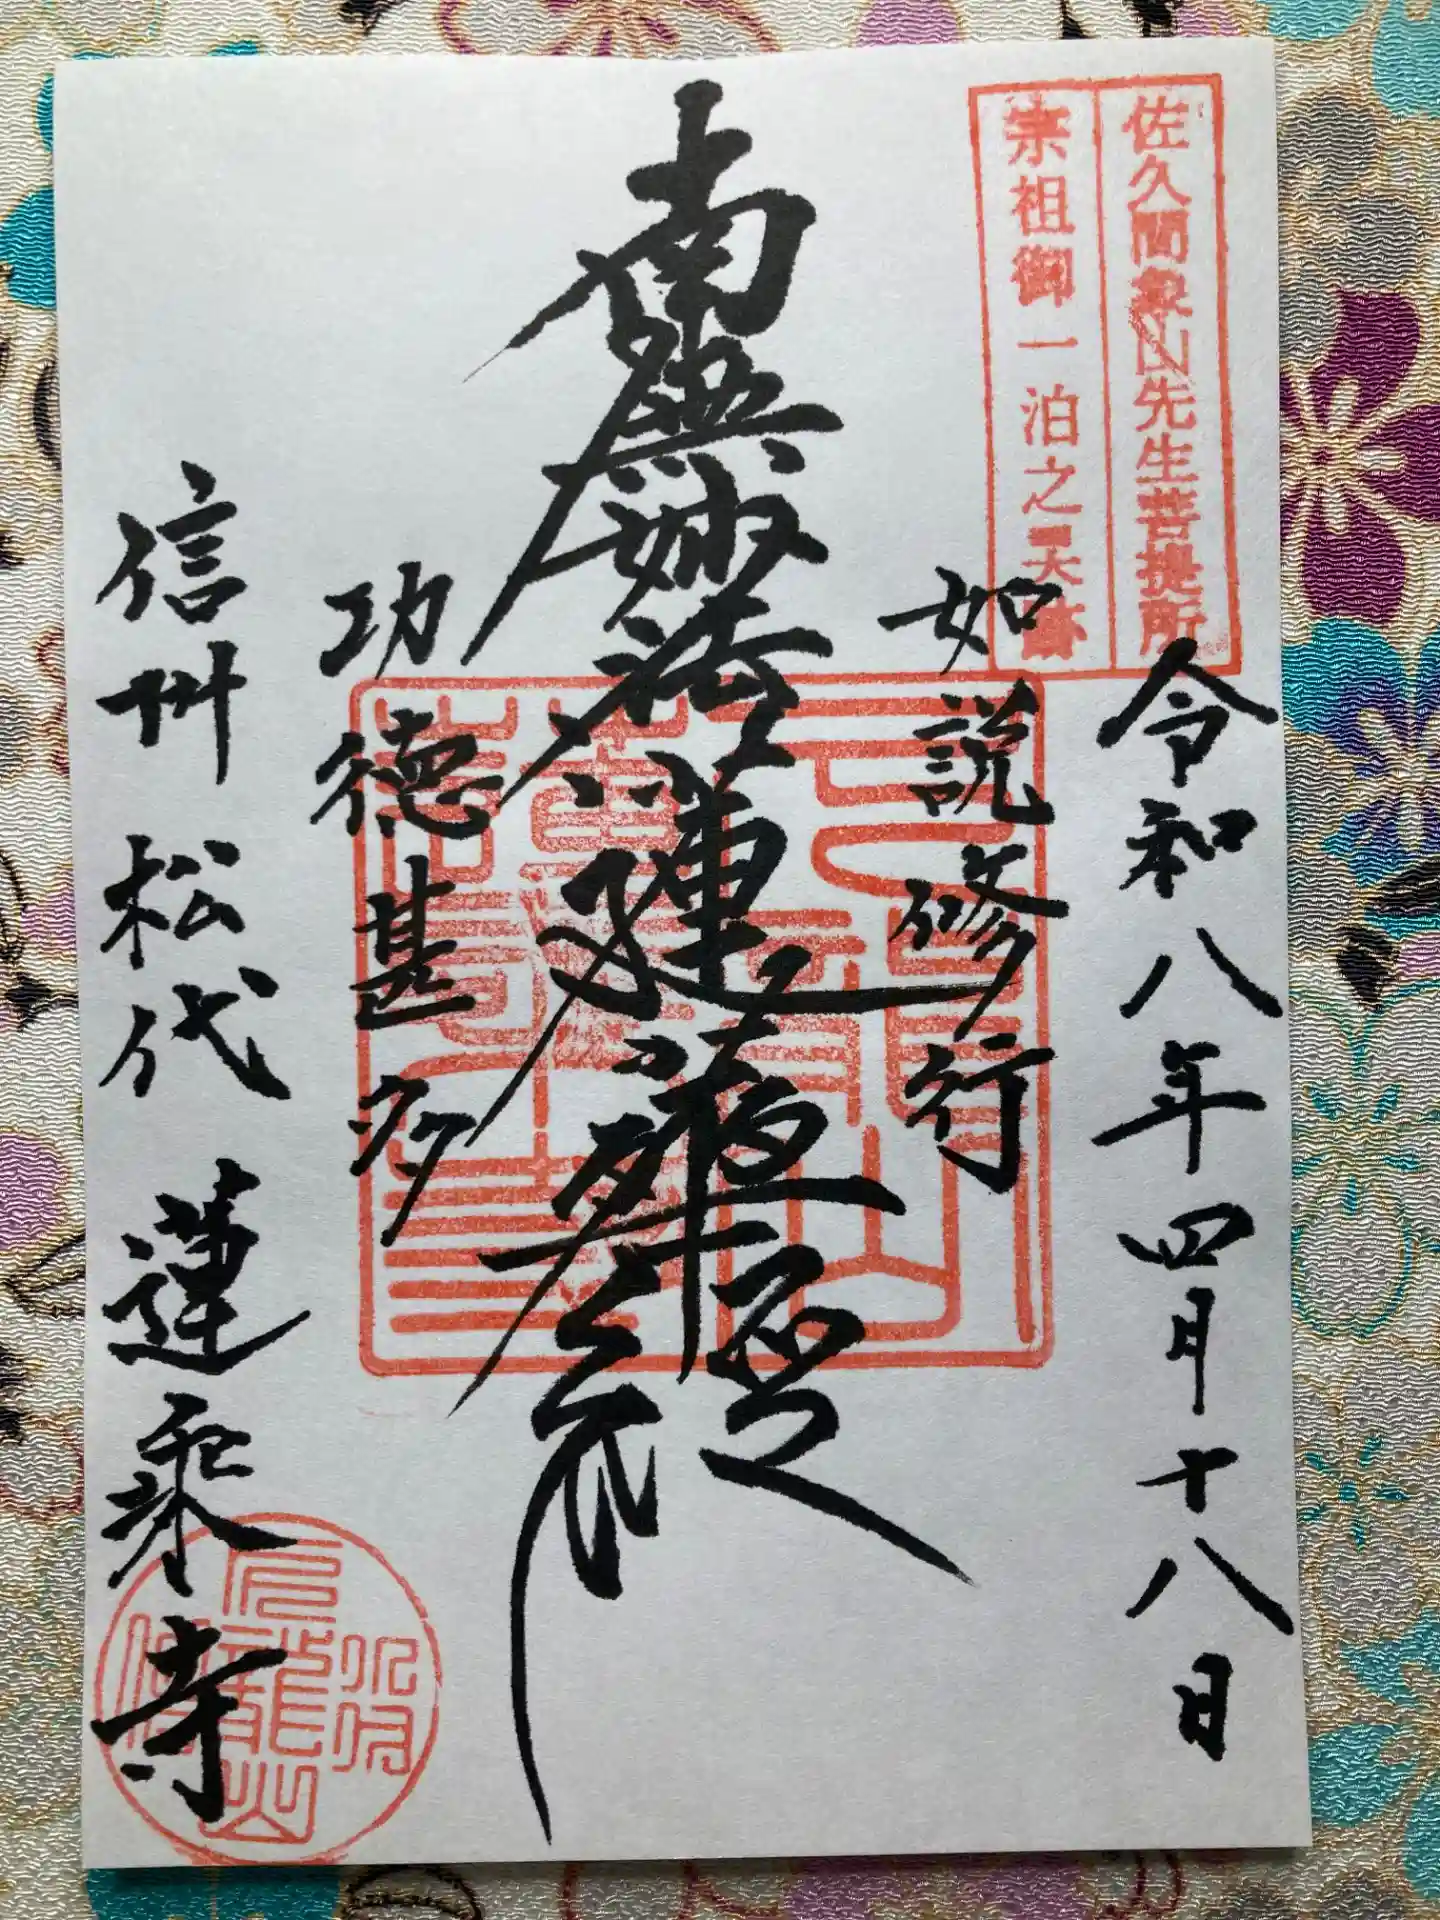 佐久間象山先生菩提所
宗祖御一泊之霊跡
令和八年四月十八日
如説修行
南無妙法蓮華経
功徳甚多
信州松代 蓮乗寺